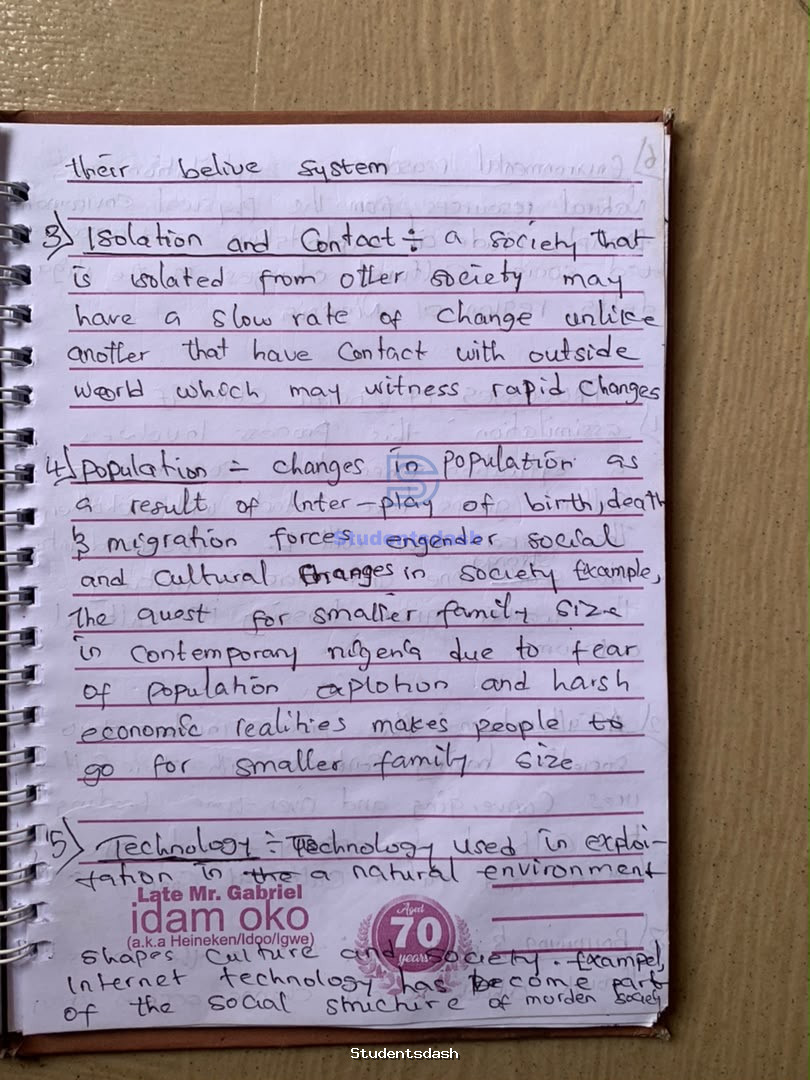 their belive system
3) Isolation and Contact ÷ a society that
is isolated from other society may
have a slow rate of change unlike
another that have Contact with outside
world which may witness rapid changes
4) population ÷ changes in population as
a result of Inter-play of birth, death
& migration forces engender social
and cultural changes in society Example,
The quest for smaller family size
in contemporary nigeria due to fear
of population explotion and harsh
economic realities makes people to
go for smaller family size
5) Technology ÷ Technology used in exploi-
tation in the a natural environment
Late Mr. Gabriel
idam oko
(a.k.a Heineken/Idoo/Igwe)
Aged
70
years
shapes culture and society. Exampel,
Internet technology has become part
of the social structure of morden society
Studentsdash
Studentsdash